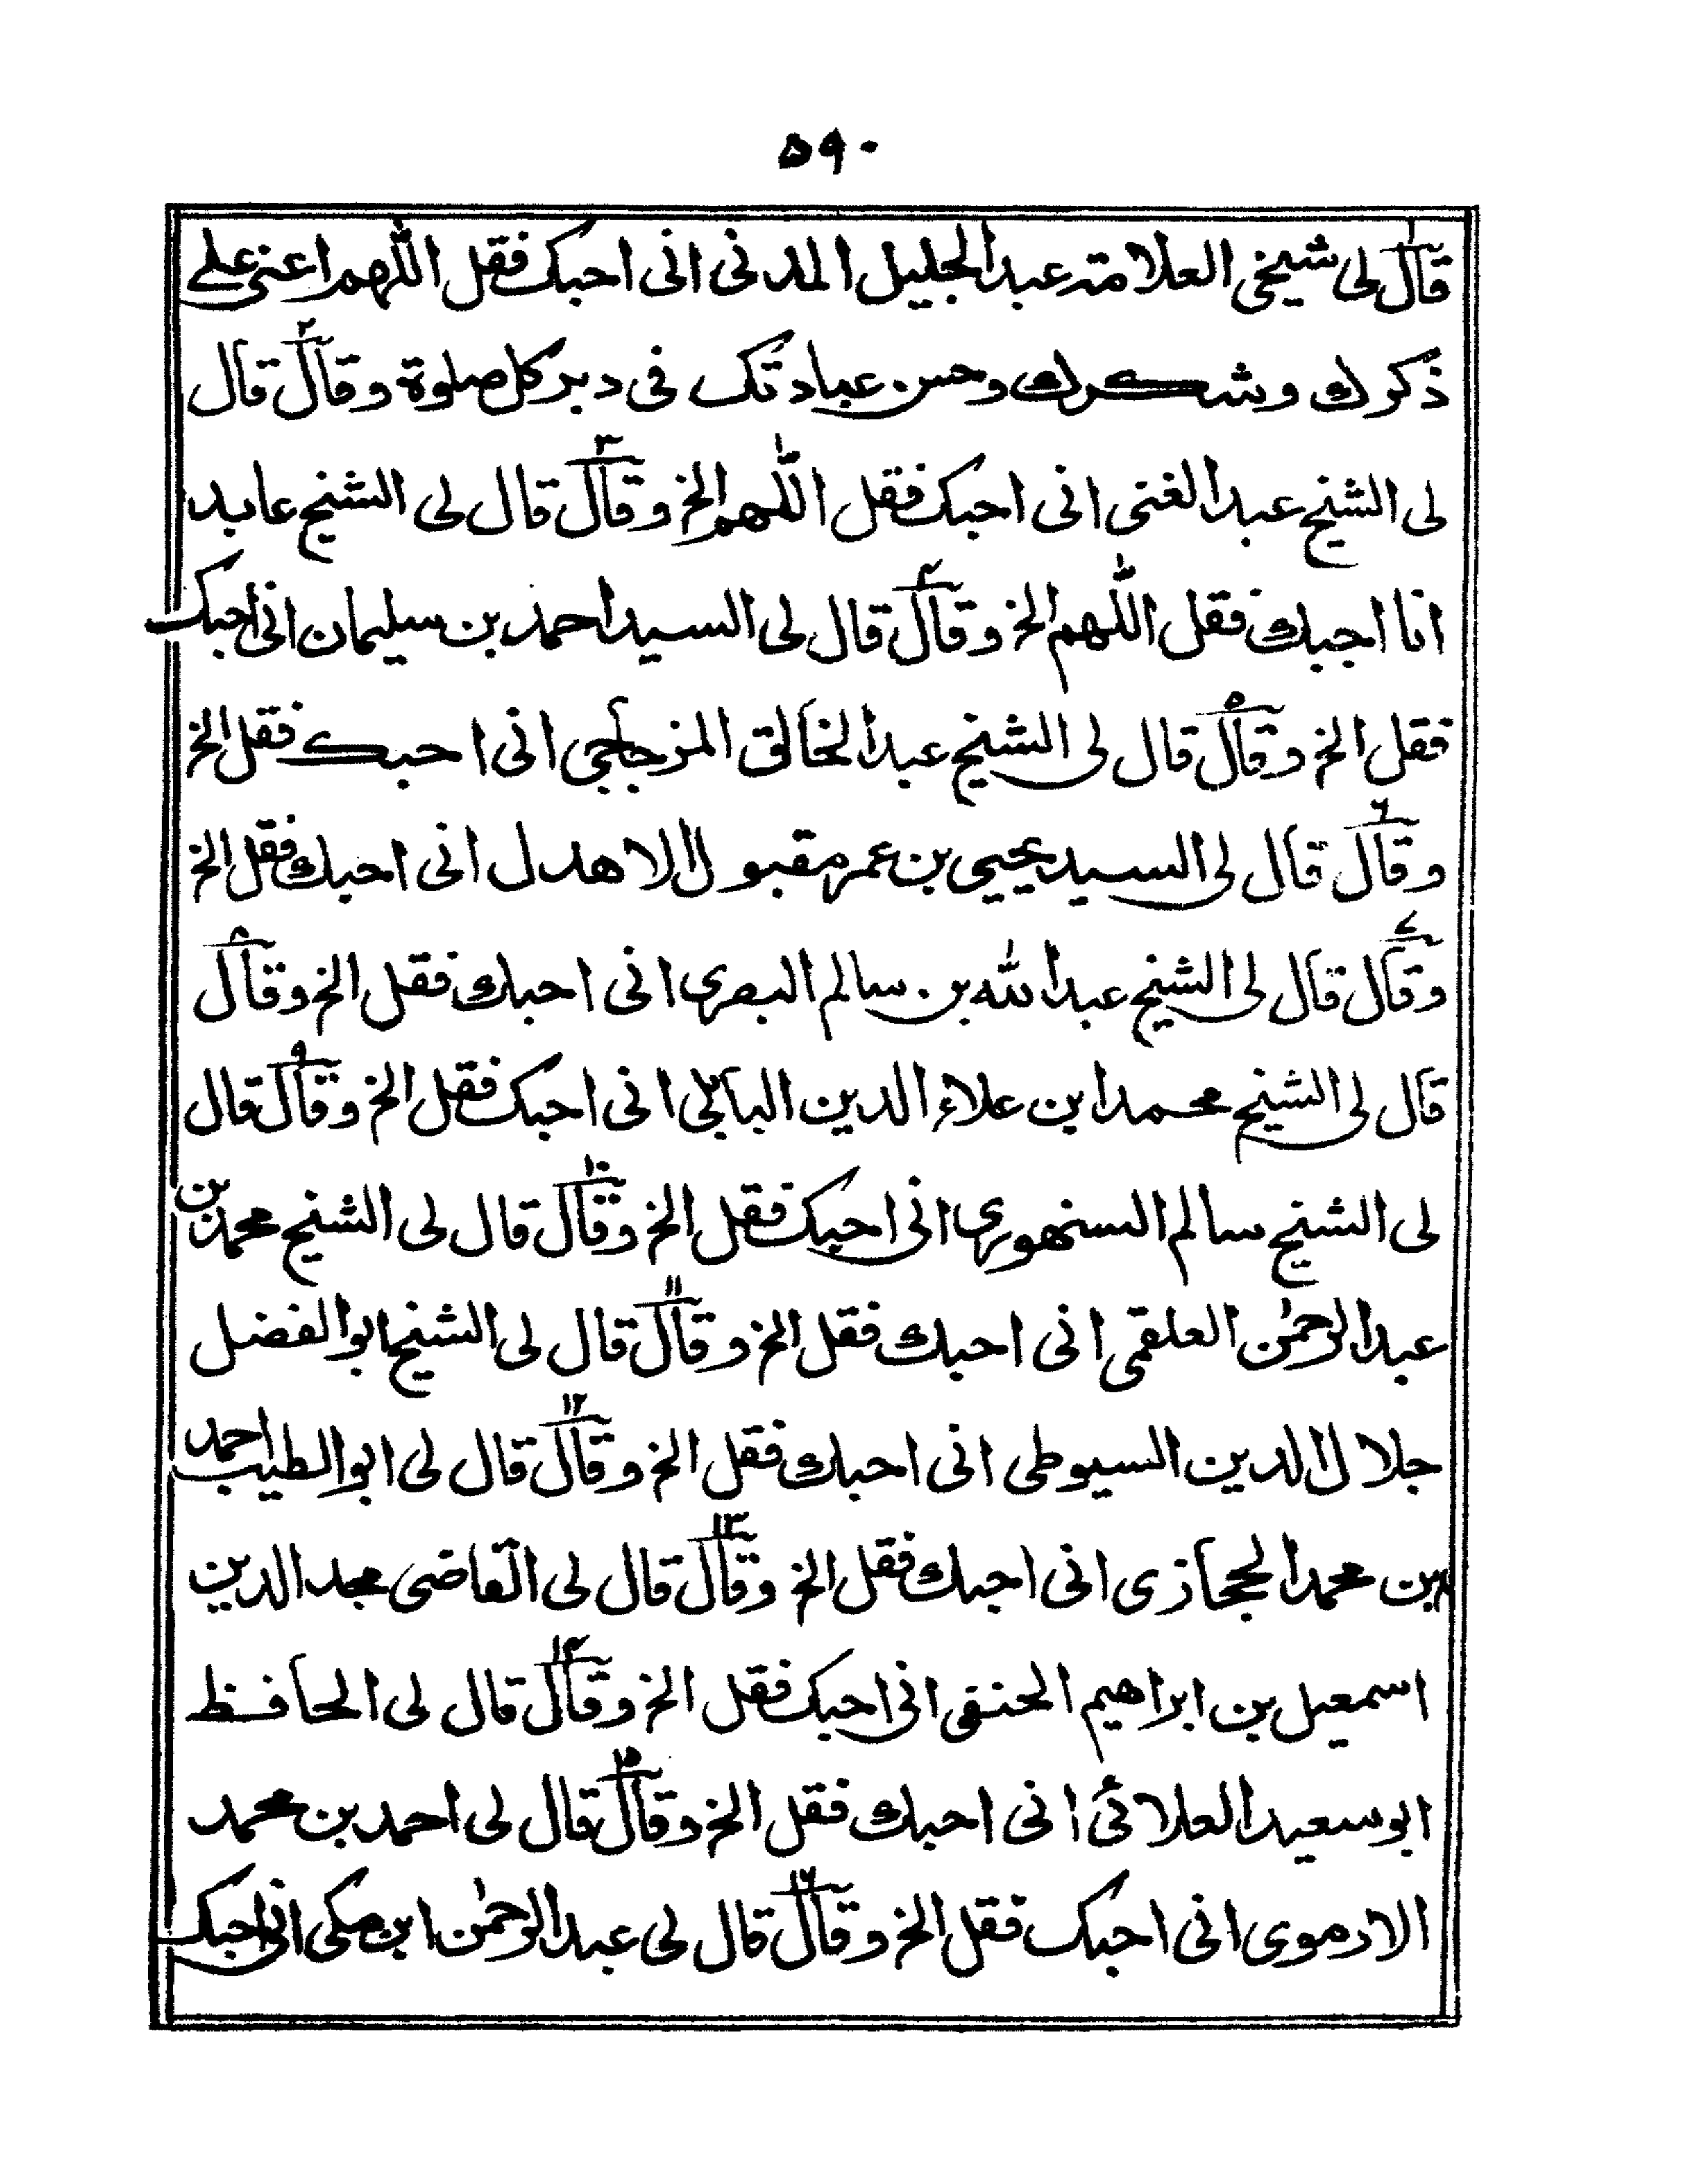 ۵۹۰
قال۱ لی شیخی العلامة عبدالجلیل المدنی انی احبک فقل اللّٰهم اعنی علے
ذکرك وشکرك وحسن عبادتک فی دبر کل صلوة وقال۲ قال
لی الشیخ عبدالغنی انی احبک فقل اللّٰهم الخ وقال۳ قال لی الشیخ عابد
انا احبك فقل اللّٰهم الخ وقال۴ قال لی السید احمد بن سلیمان انی احبک
فقل الخ وقال۵ قال لی الشیخ عبدالخالق المزجاجی انی احبك فقل الخ
وقال۶ قال لی السید یحیی بن عمر مقبول الاهدل انی احبك فقل الخ
وقال۷ قال لی الشیخ عبدالله بن سالم البصری انی احبك فقل الخ وقال۸
قال لی الشیخ محمد ابن علاء الدین البابلی انی احبک فقل الخ وقال۹ قال
لی الشیخ سالم السنهوری انی احبک فقل الخ وقال۱۰ قال لی الشیخ محمد بن
عبدالرحمٰن العلقمی انی احبك فقل الخ وقال۱۱ قال لی الشیخ ابوالفضل
جلال الدین السیوطی انی احبك فقل الخ وقال۱۲ قال لی ابوالطیب احمد
بن محمد الحجازی انی احبك فقل الخ وقال۱۳ قال لی القاضی مجد الدین
اسمعیل بن ابراهیم الحنفی انی احبک فقل الخ وقال۱۴ قال لی الحافظ
ابوسعید العلائی انی احبك فقل الخ وقال۱۵ قال لی احمد بن محمد
الارموی انی احبک فقل الخ وقال۱۶ قال لی عبدالرحمٰن ابن مکی انی احبک